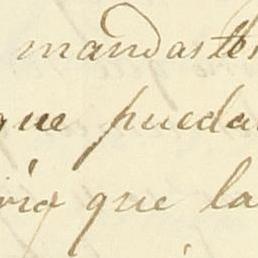 mandaste
que pueda
que la